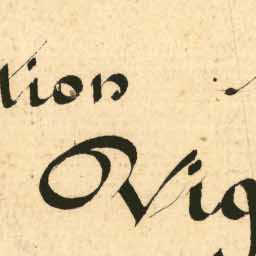 tion
Vig